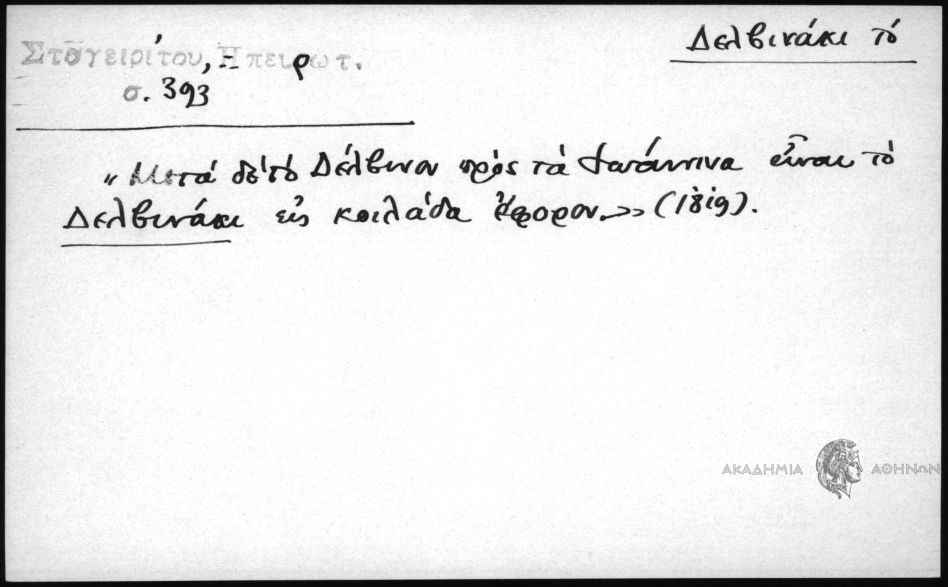 Δελβινάκι τό
Σταγειρίτου, Ηπειρωτ.
σ. 393
"Μετά δέ τό Δέλβινον πρός τά Ιωάννινα εἶναι τό
Δελβινάκι εἰς κοιλάδα εὔφορον.>> (1819).
ΑΚΑΔΗΜΙΑ ΑΘΗΝΩΝ